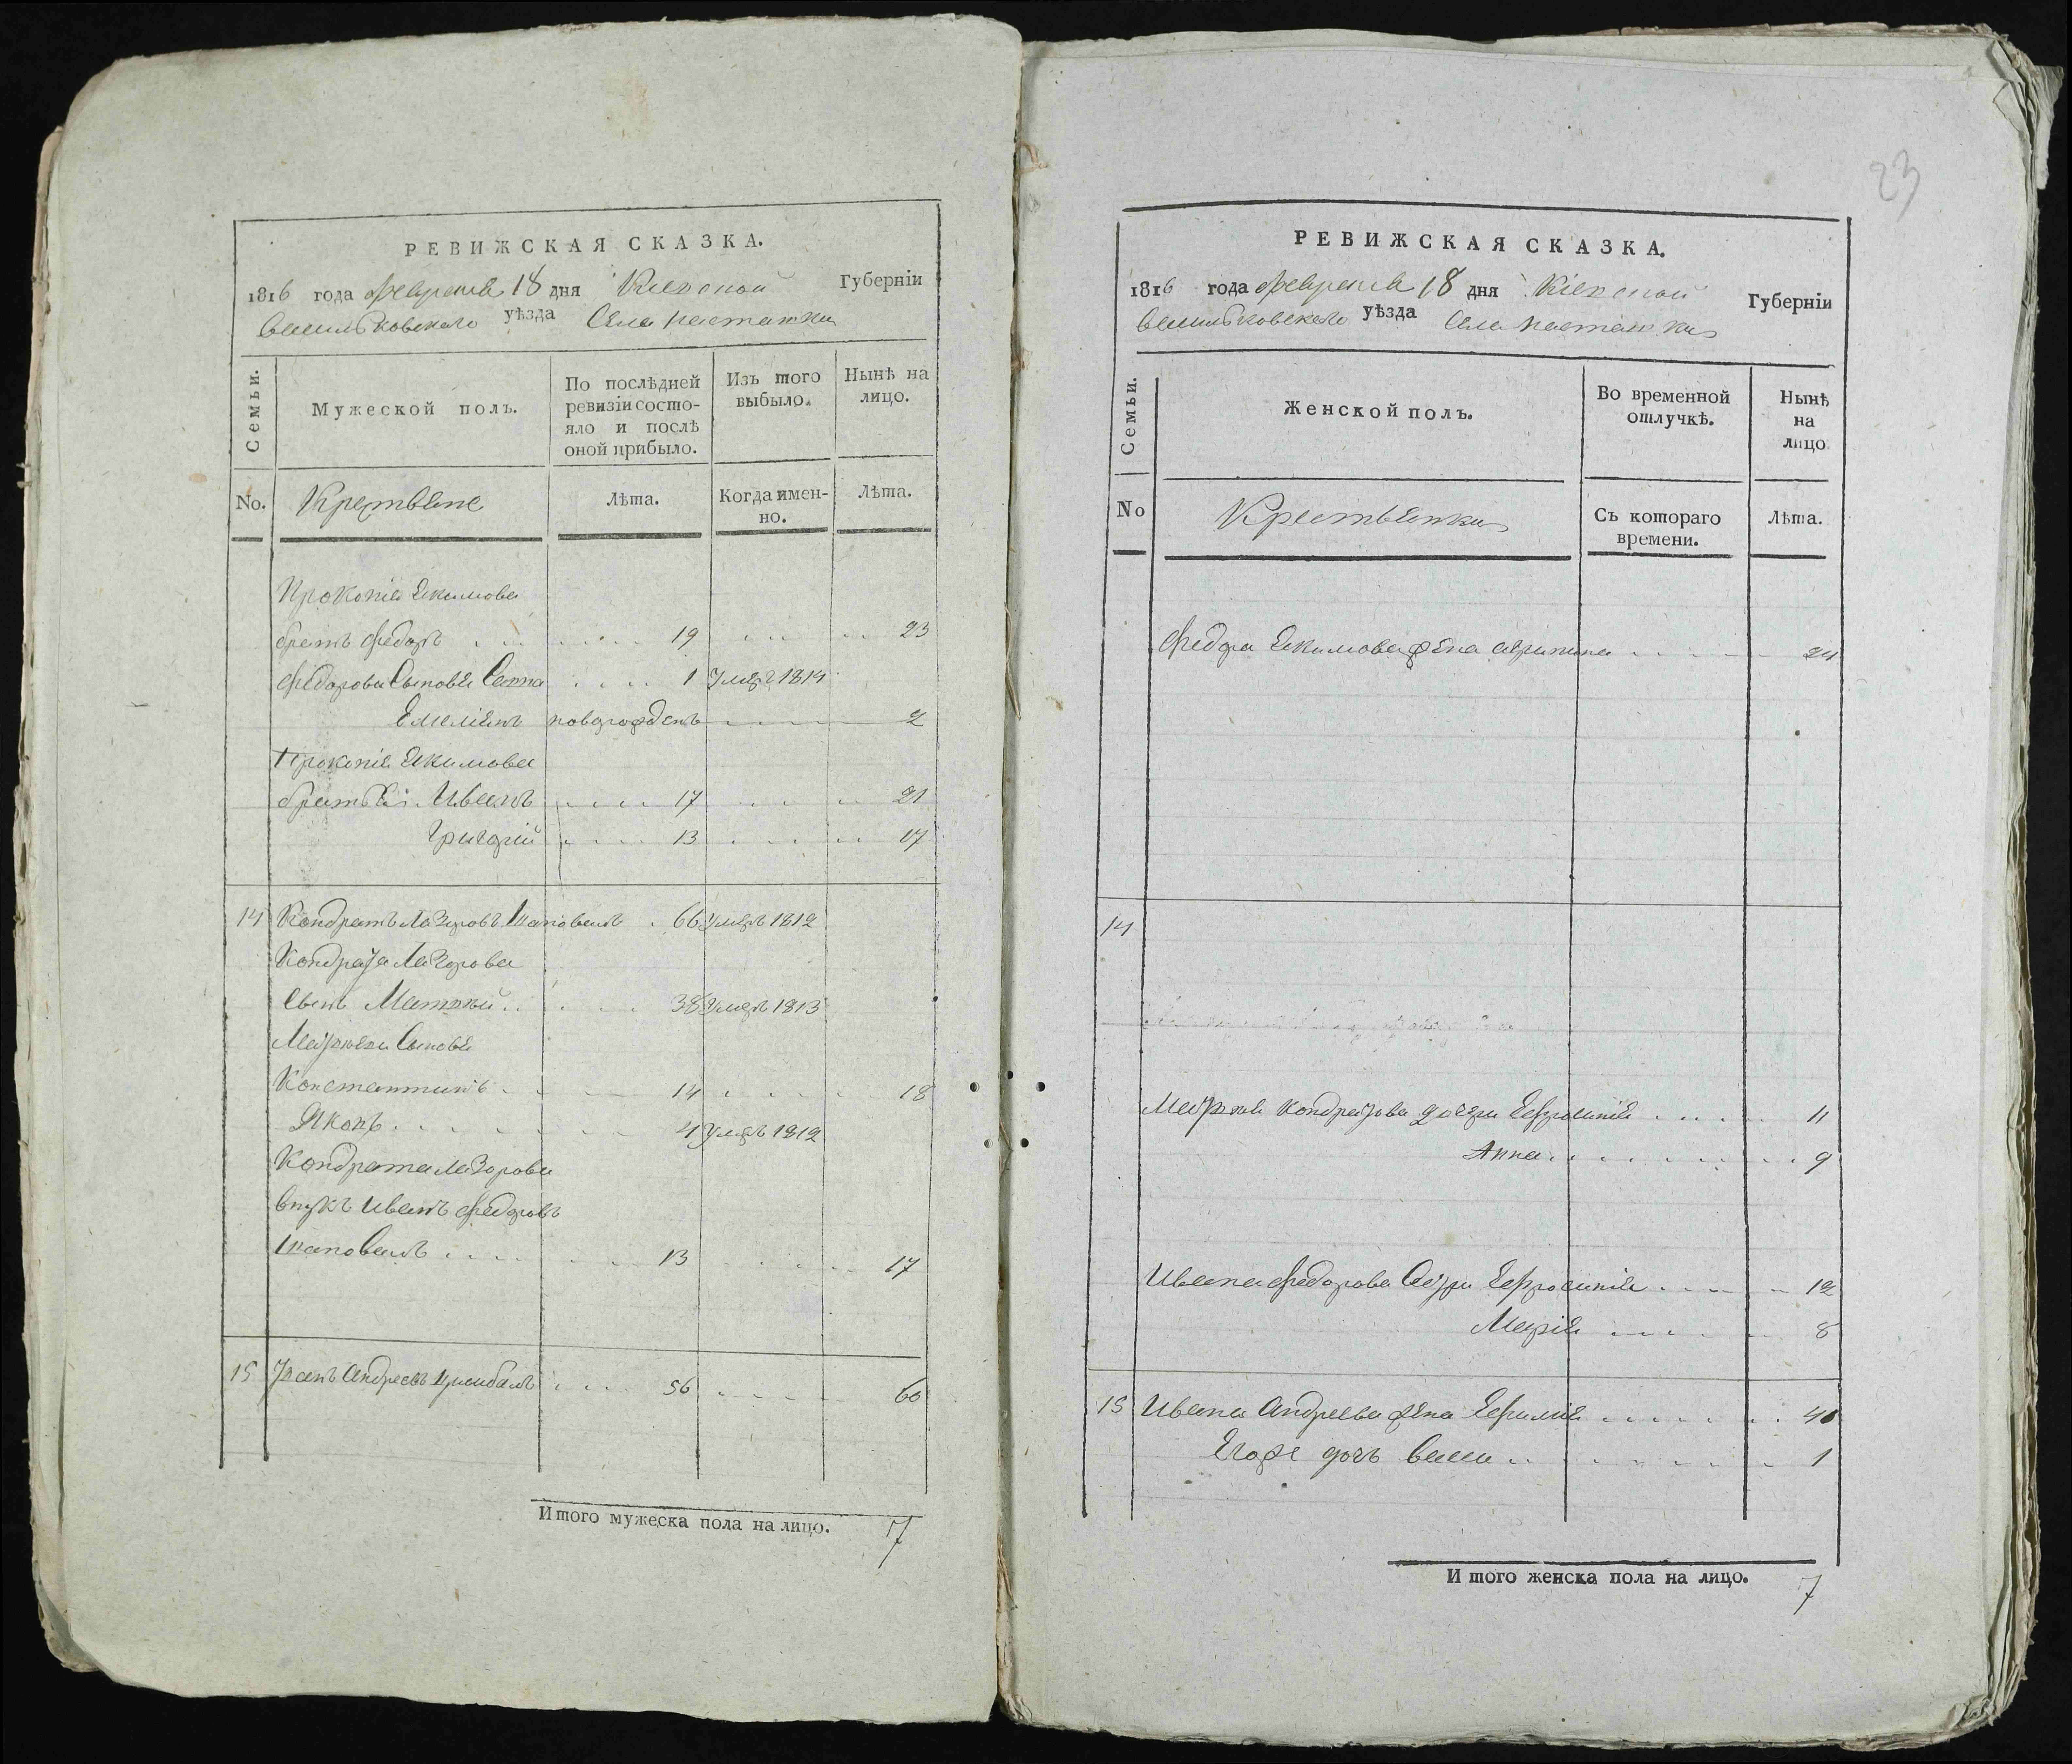 РЕВИЖСКАЯ СКАЗКА.
1816 года февраля 18 дня Киевской Губерніи
васильковскаго уѣзда Села пасташки
Семьи.
Мужеской полъ.
По послѣдней ревизіи состо-
яло и послѣ
оной прибыло.
Изъ того
выбыло.
Нынѣ на
лицо.
No.
Крестьяне
Лѣта.
Когда имен-
но.
Лѣта.
Прокопія Якимова
братъ Федоръ 19 23
Федорова Сыновья Савва 1 умеръ 1814
Емельянъ новорожденъ 2
Прокопія Якимова
братья Иванъ 17 21
Григорій 13 17
14 Кондратъ Лазоровъ 66 умеръ 1812
Кондратя Лазорова
Сынъ Матвей 38 умеръ 1813
Сыновья
Константинъ 14 18
Яковъ 4 умеръ 1812
Кондрата Лазорова
внукъ Иванъ Федоровъ
13 17
15 Андреевъ 56 60
Итого мужеска пола на лицо. 7
23
РЕВИЖСКАЯ СКАЗКА.
1816 года февраля 18 дня Кіевской Губерніи
васильковскаго уѣзда Села пасташки
Семьи.
Женской полъ.
Во временной
отлучкѣ.
Нынѣ
на
лицо
No
Крестьянки
Съ котораго
времени.
Лѣта.
Федора Якимова жена 24
14
Кондратова дочери Ефросинія 11
Анна 9
Ивана Федорова Сестри Ефросинія 12
Марія 8
15 Ивана Андреева жена Ефимія 40
Егоже дочъ васса 1
Итого женска пола на лицо. 7